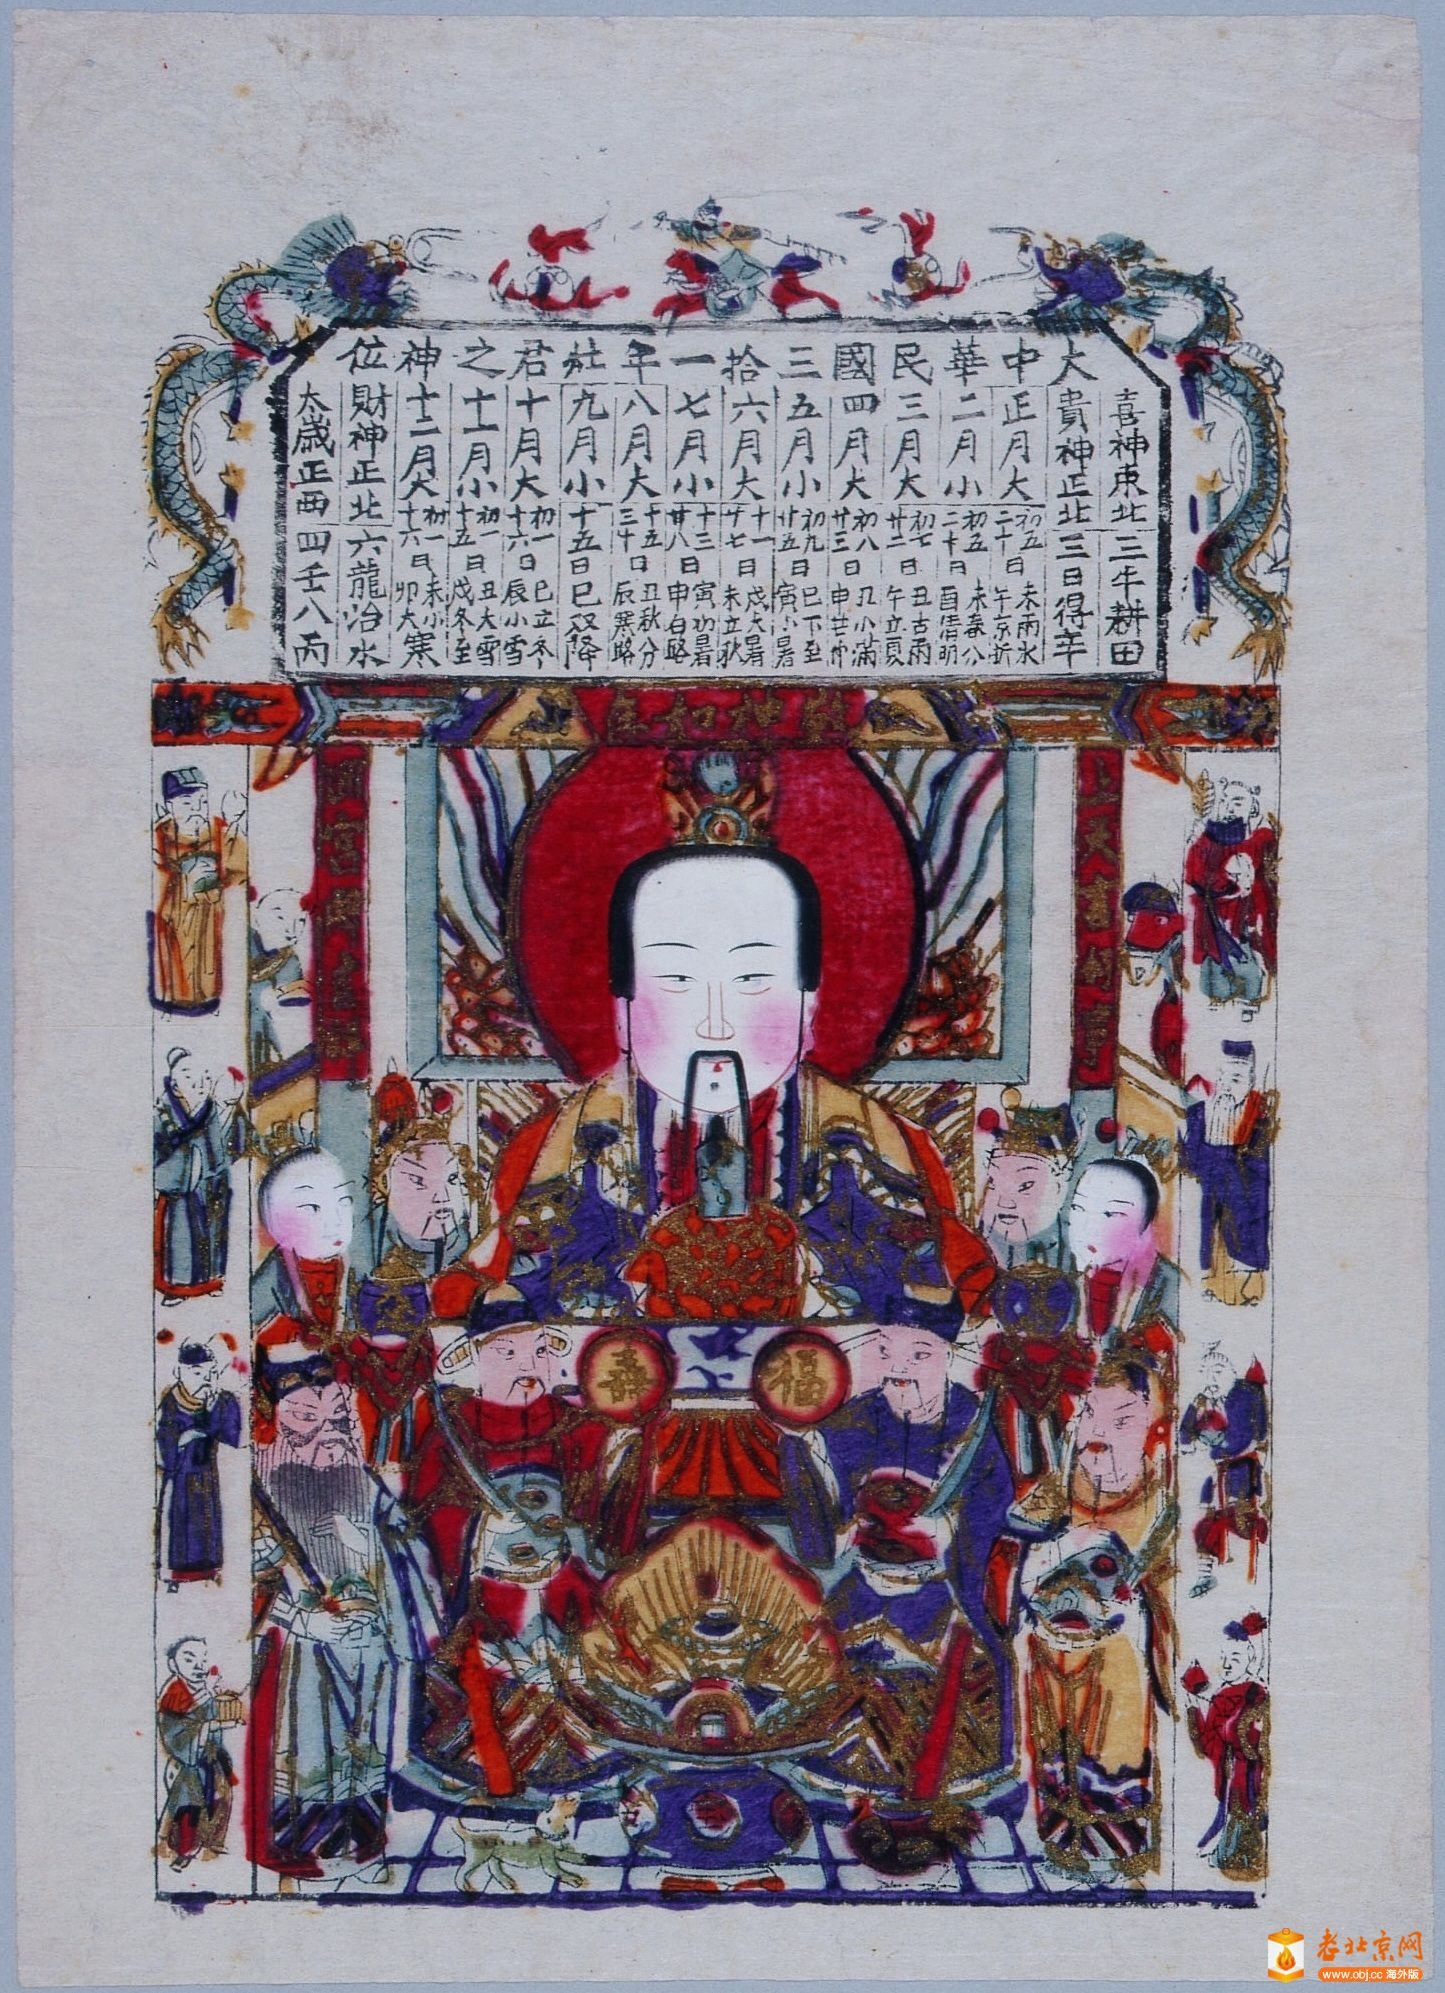 大中華民國三拾一年灶君之神位
喜神東北 三牛耕田
貴神正北 三日得辛
正月大 初五 二十日 未雨水
二月小 初五 二十日 未春分 酉清明
三月大 初七 廿二日 丑古雨 午立夏
四月大 初八 廿三日 丑小滿
五月小 初九 廿五日 巳下至 寅小暑
六月大 十一 廿七日 戌大暑 未立秋
七月小 十三 廿八日 申白路
八月大 十五 三十日 丑秋分 辰寒路
九月小 十五日 巳双降
十月大 初一 十六日 巳立冬 辰小雪
十一月小 初一 十五日 丑大雪 戊冬至
十二月大 初一 十六日 未小 卯大寒
財神正北 六龍治水
太歲正西 四壬八丙
上天言好事
喜
福
老北京网
www.obj.cc 海外版